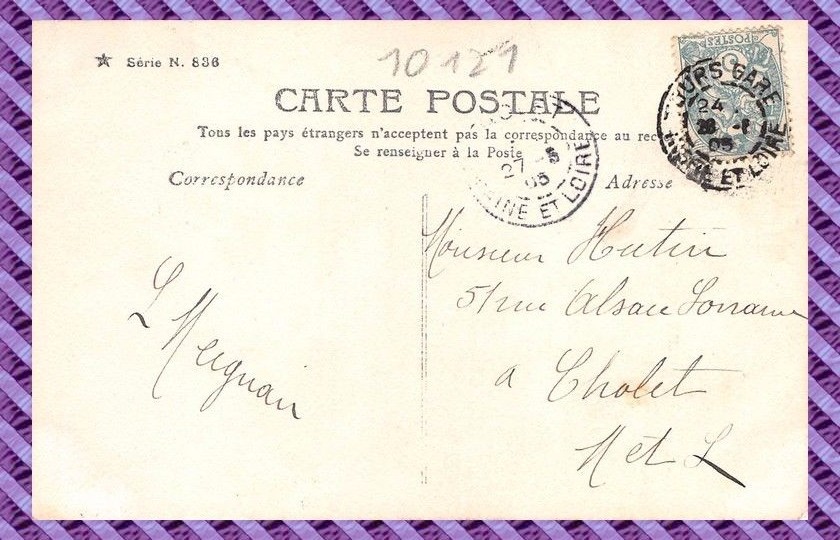 Série N. 836
10121
CARTE POSTALE
Tous les pays étrangers n'acceptent pas la correspondance au rec
Se renseigner à la Poste
Correspondance
Adresse
POSTES
TOURS GARE
24
05
INDRE ET LOIRE
05
MAINE ET LOIRE
L Meignan
Monsieur Hutin
51 rue Alsace Lorraine
a Cholet
M et L